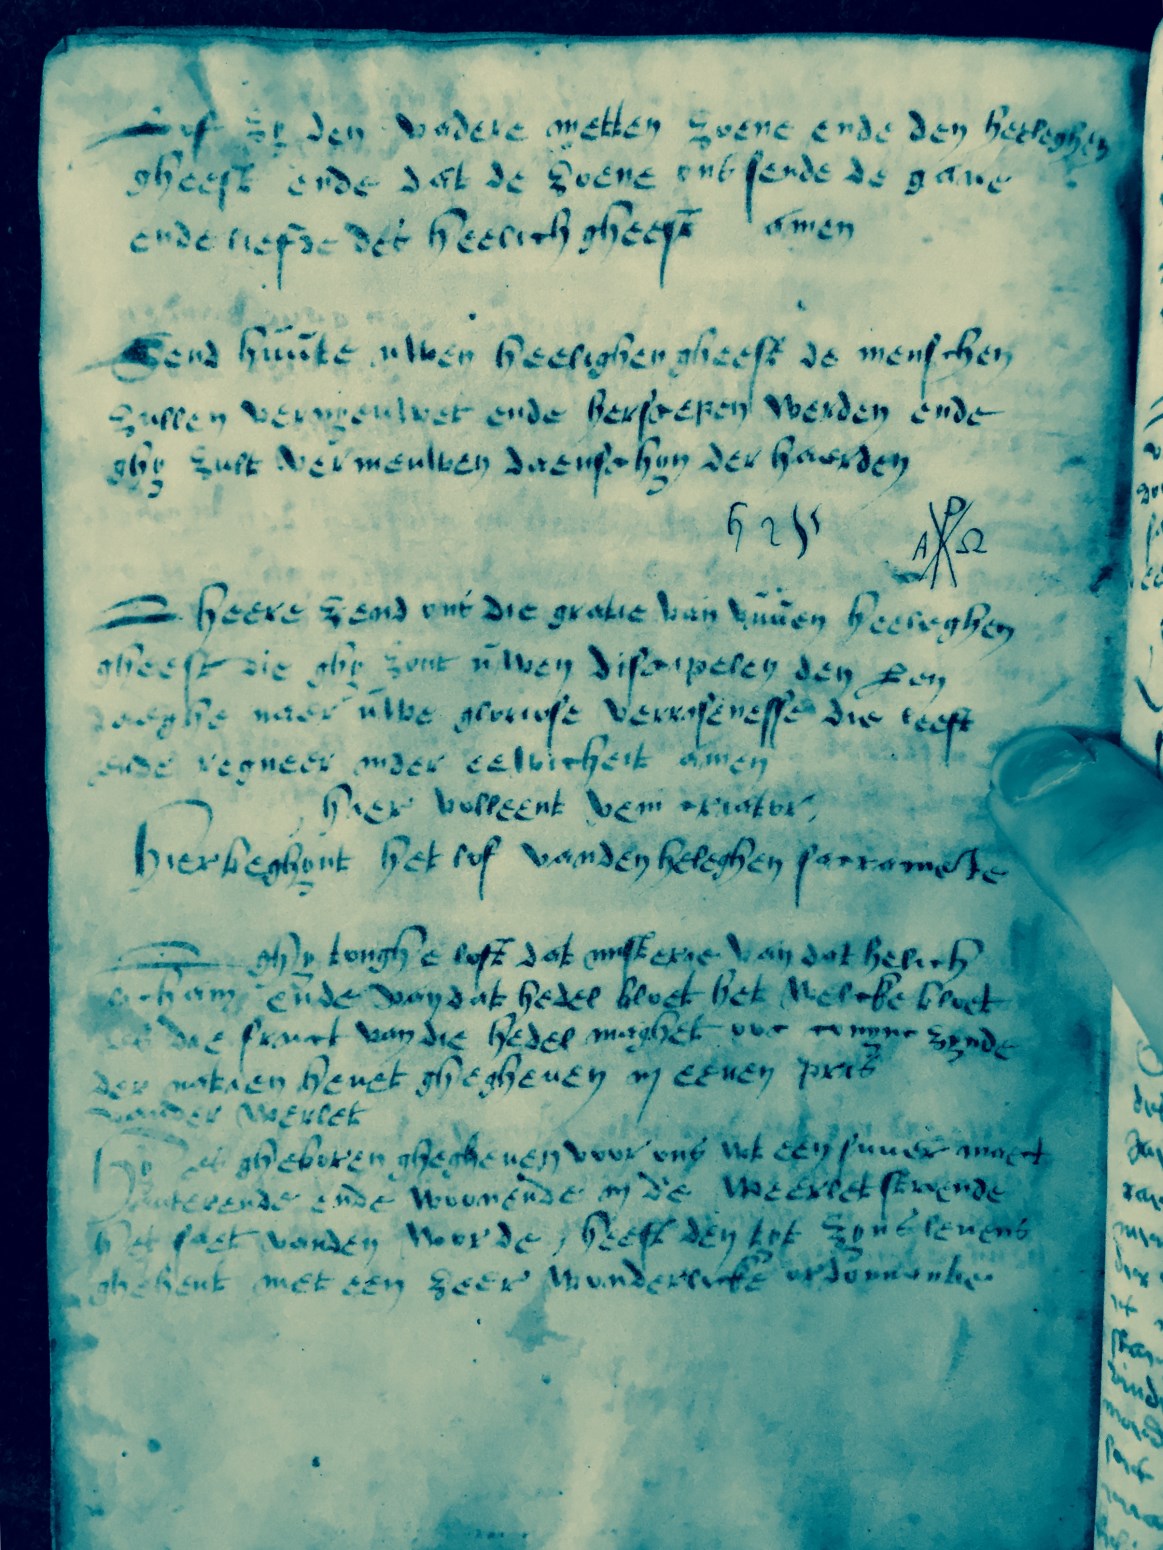 Lof zy den vadere metten zoene ende den heeleghen
gheest ende dat de zoene ons sende de gave
ende liefde des heelich gheest amen
Send huute uwen heelighen gheest de menschen
zullen vernyeuwet ende herscepen werden ende
ghy zult vermeuwen daenschyn der haerden
A Ω
heere zend ons die gratie van uwen heeleghen
gheest die ghy zont uwen discipelen den
daeghe naer uwe gloriose verrisenesse die leeft
ende regneer inder eewicheit amen
hier volleent veni criator
Hier beghynt het lof vanden heleghen sacramente
ghy tonghe loft dat misterie van dat helich
licham ende van dat hedel bloet het welcke bloet
die fruct van die hedel maghet zynde
der natien hevet ghegheven in eenen pris
vander werlet
Hy es gheboren ghegheven voor ons wt een suuer maect
ende woonende in de weerlet stroiende
het saet vanden worde heeft den tyt zyns levens
ghehent met een zeer wonderlicke ordonnantie